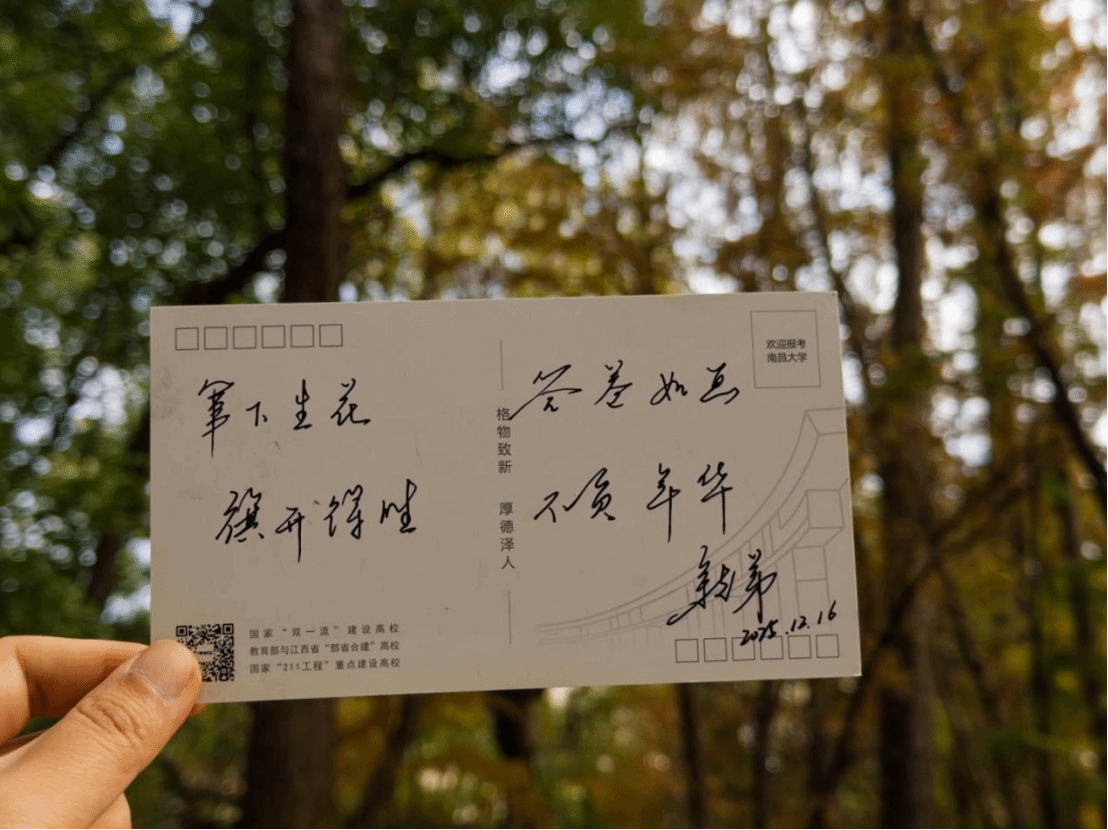 笔下生花
旗开得胜
国家“双一流”建设高校
教育部与江西省“部省合建”高校
国家“211工程”重点建设高校
格物致新 厚德泽人
欢迎报考
南昌大学
答卷如画
不负年华
2025.12.16